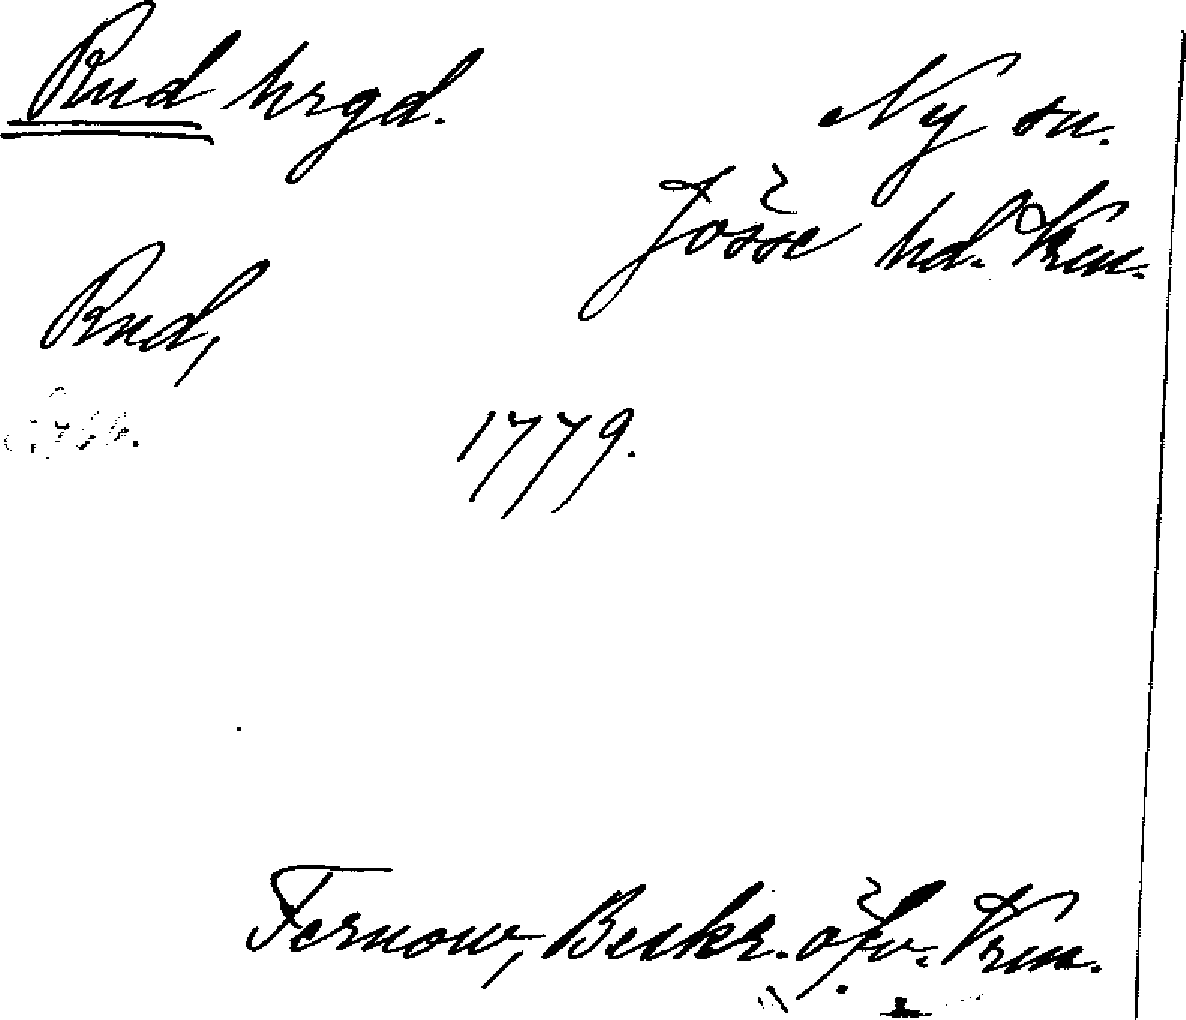 Rud hrgd. Ny sn.
Jösse hd. Vrm.
Rud,
1779.
Fernow, Beskr. öfv. Vrm.